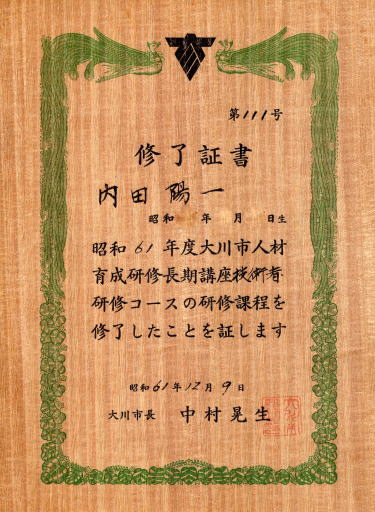 第111号
修了証書
内田陽一
昭和 年 月 日生
昭和61年度大川市人材
育成研修長期講座技術者
研修コースの研修課程を
修了したことを証します
昭和61年12月9日
大川市長 中村晃生